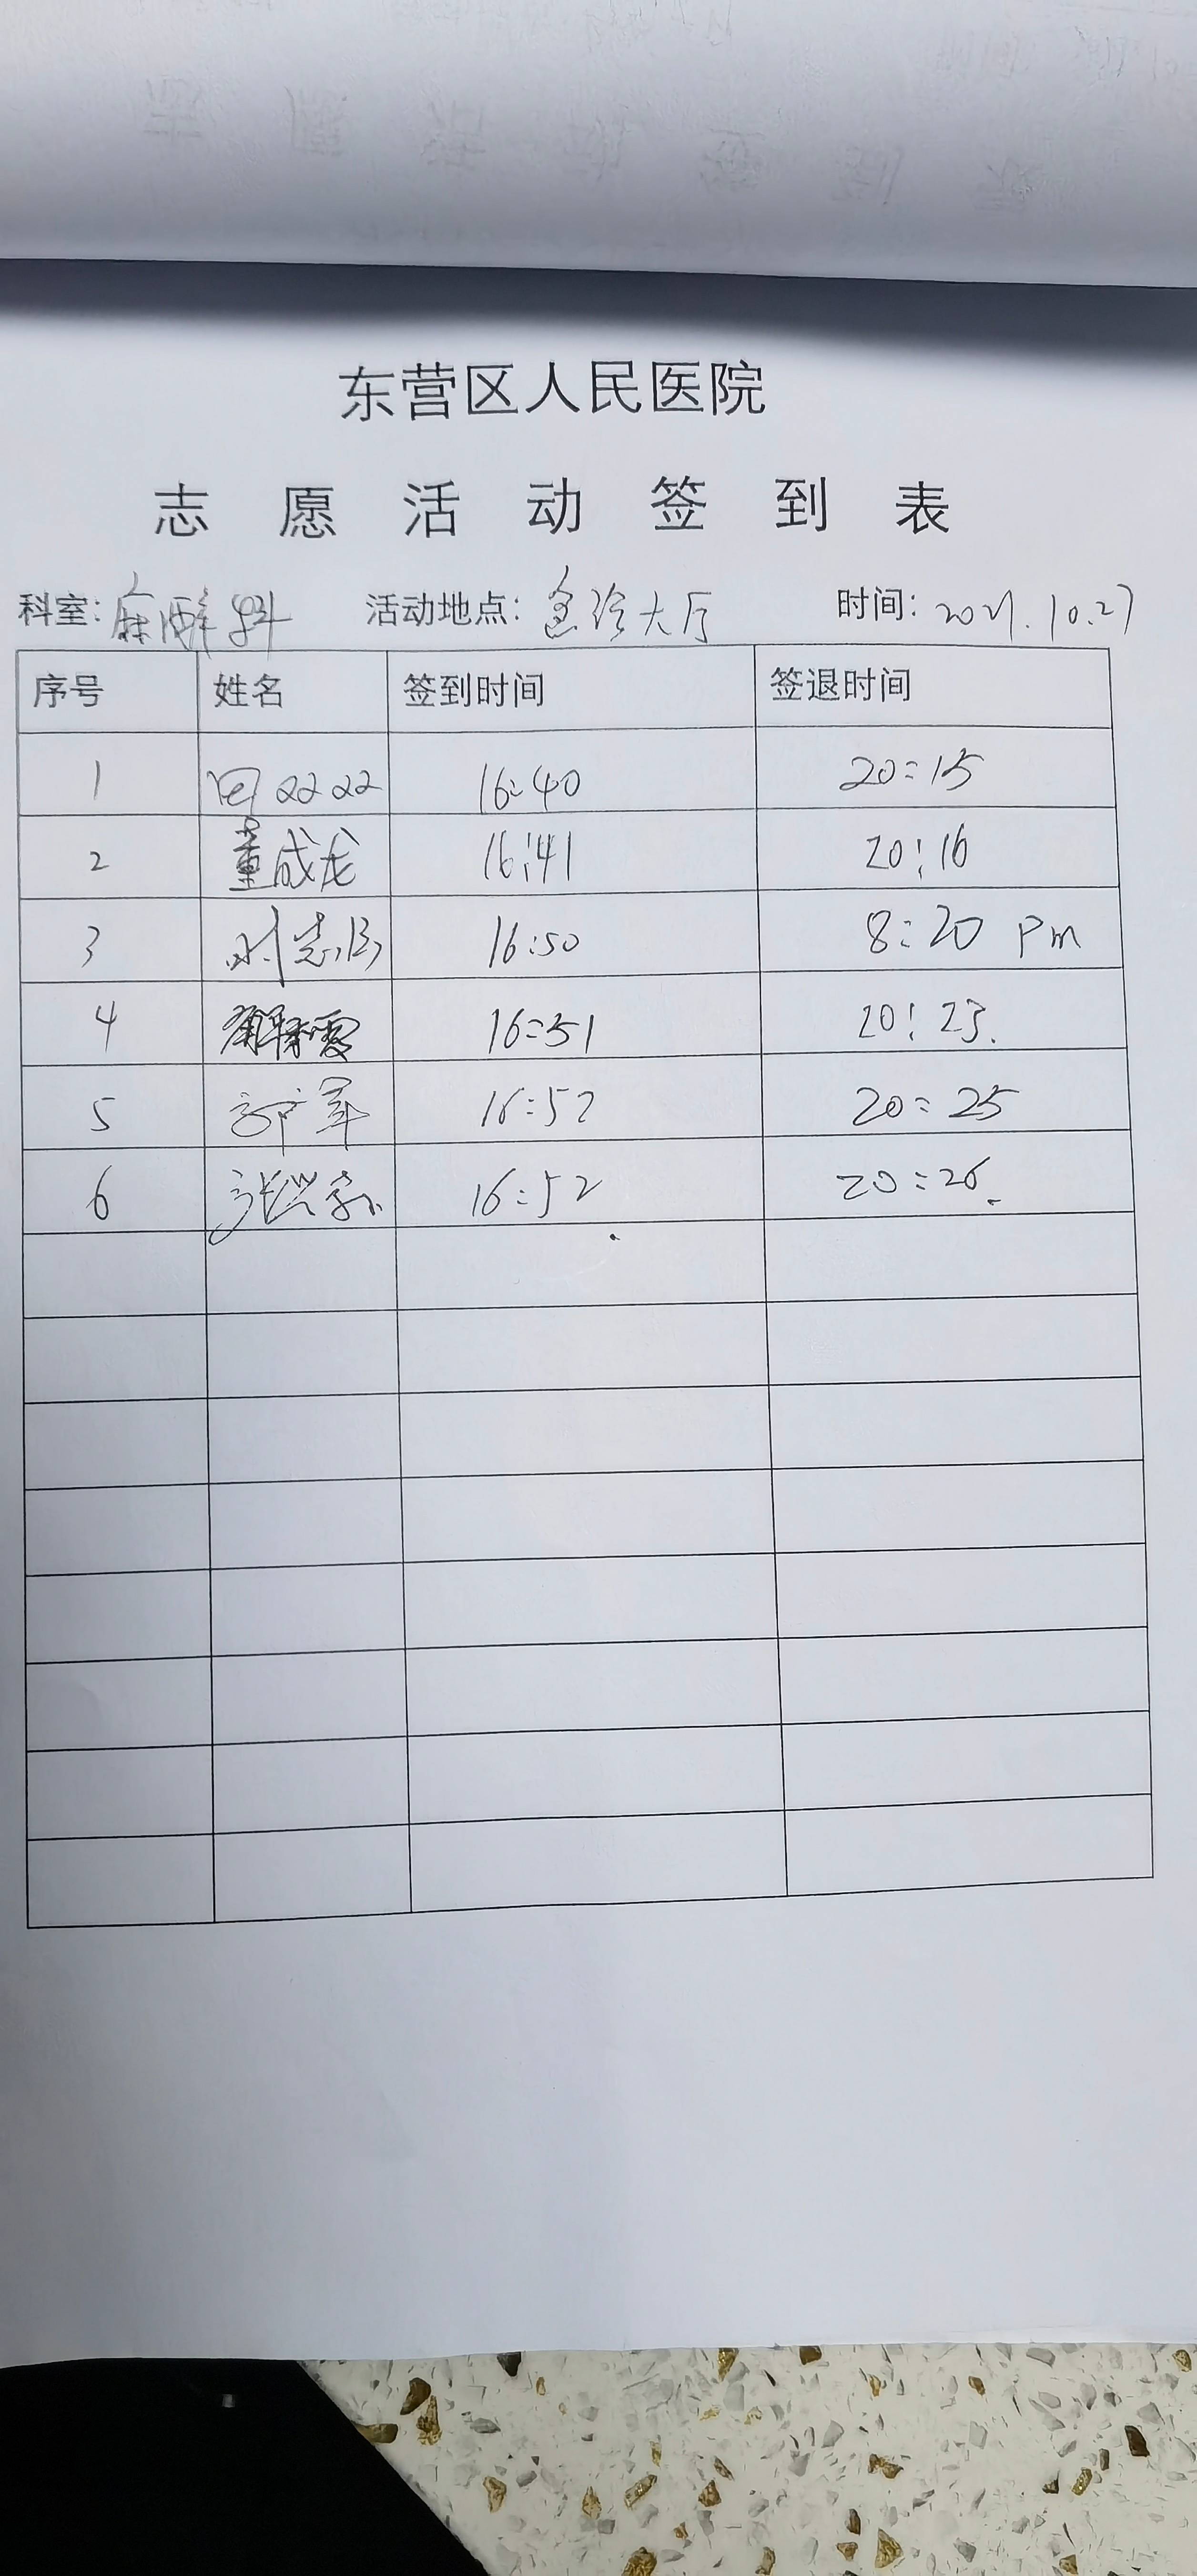 东营区人民医院
志愿活动签到表
科室：麻醉科 活动地点：急诊大厅 时间：2021.10.27
序号 姓名 签到时间 签退时间
1 16:40 20:15
2 董成龙 16:41 20:16
3 16:50 8:20 pm
4 16:51 20:23.
5 郭军 16:52 20:25
6 16:52 20:26.